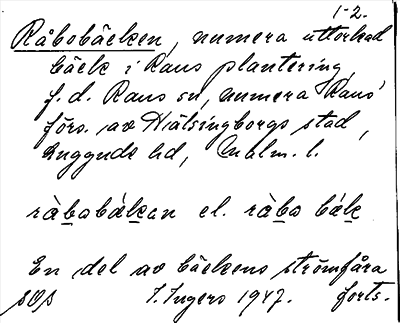 1-2.
Råbobäcken, numera uttorkad
bäck i Raus plantering,
f.d. Raus sn, numera Raus
förs. av Hälsingborgs stad,
Luggude hd, Malm. l.
ràbobækan el. ràbo bæk
En del av bäckens strömfåra
SOS I. Ingers 1947. forts.